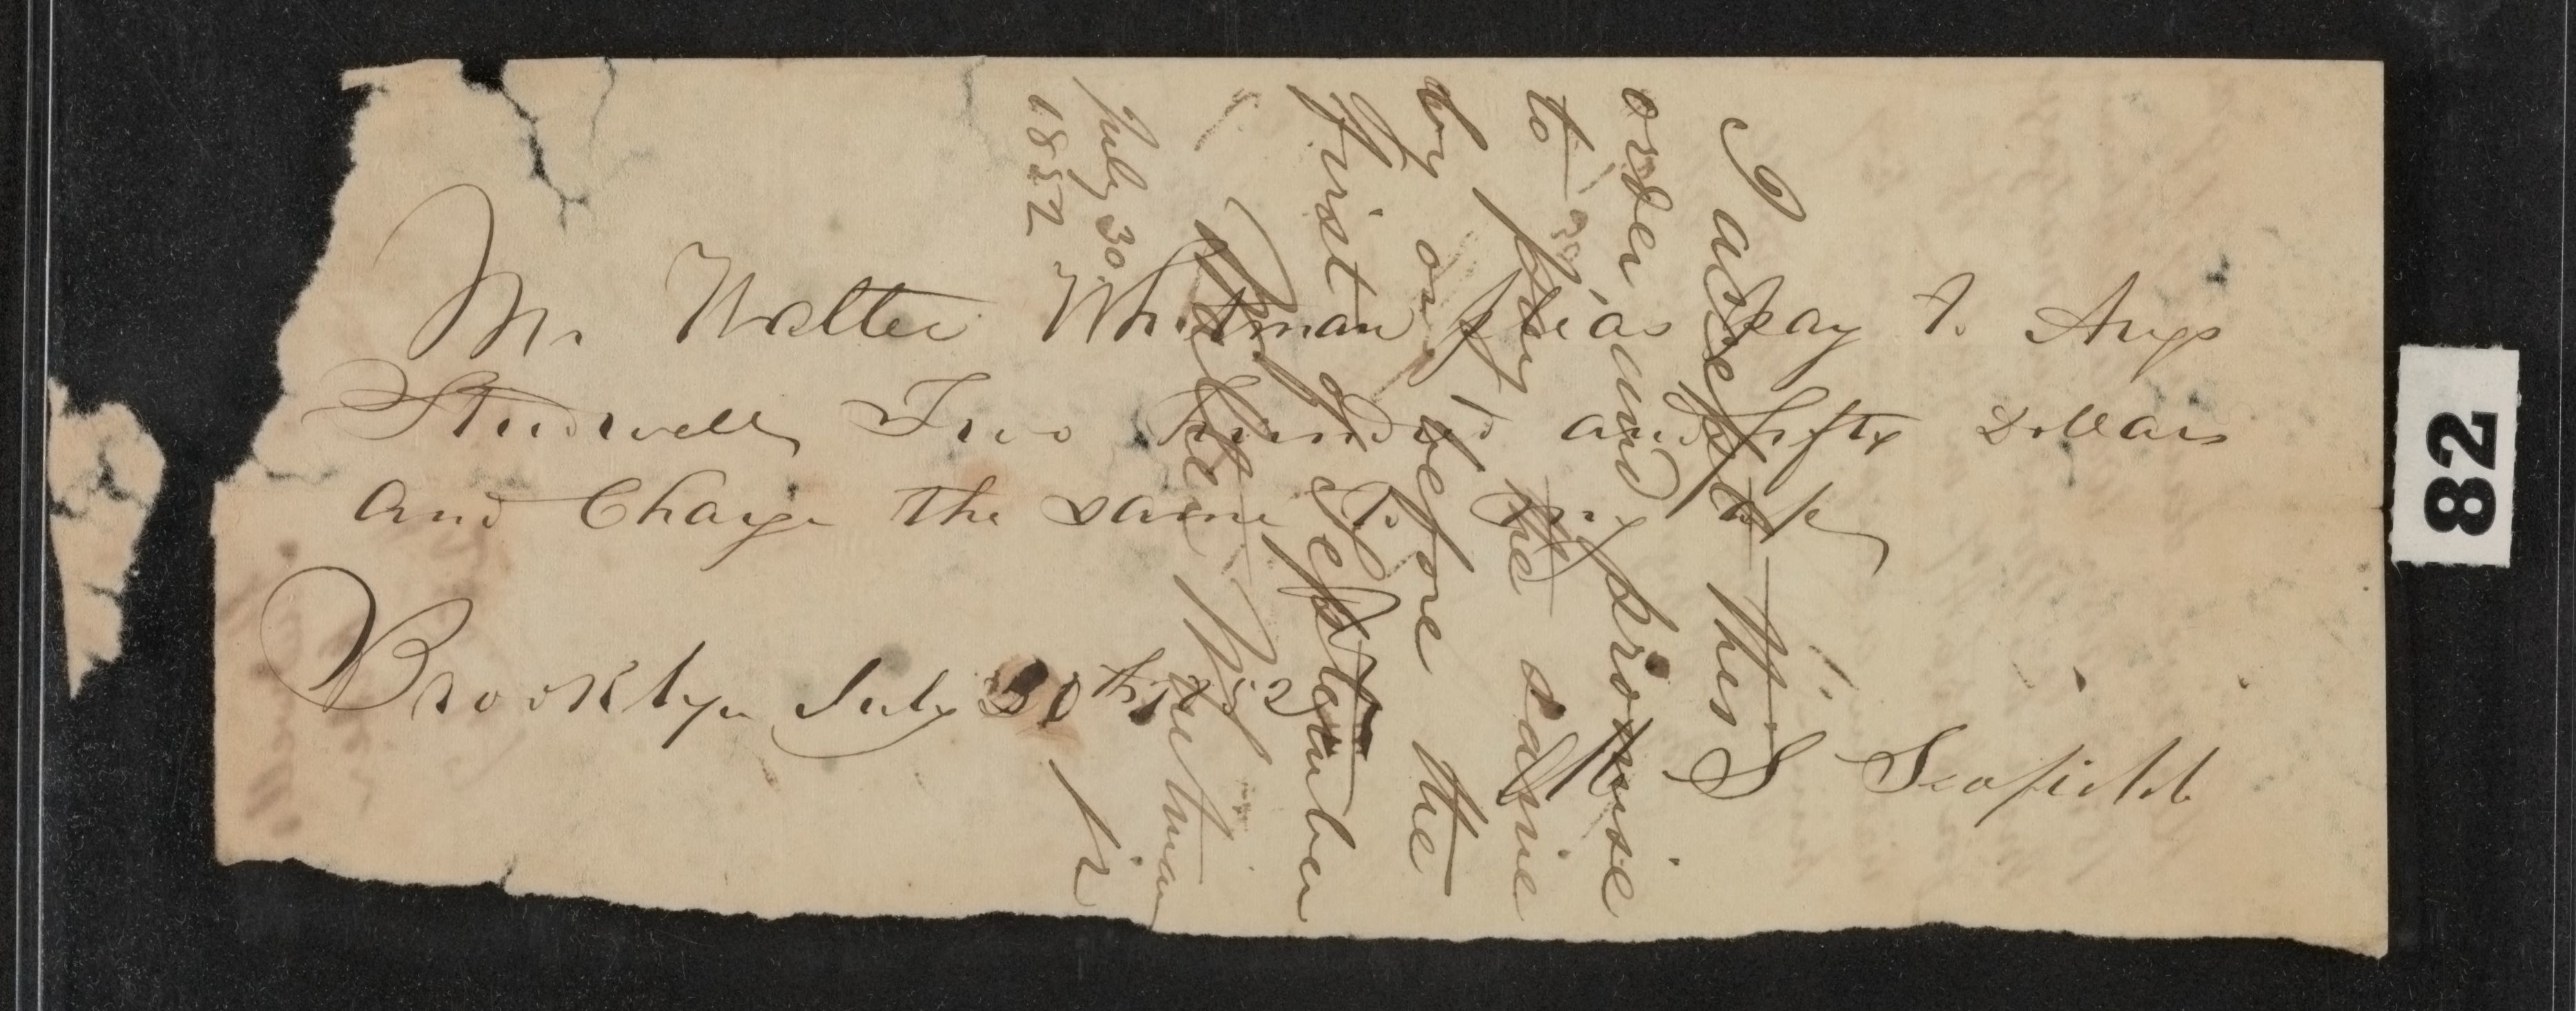 Mr Walter Whitman pleas pay to Augs
Studwell Two hundred and fifty Dollars
and Charge the same To
Brooklyn July 30th 1852
S Scofield
I accept this
order and promise
to pay the same
by or before the
first of September
Walter Whitman
July 30.
1852
82